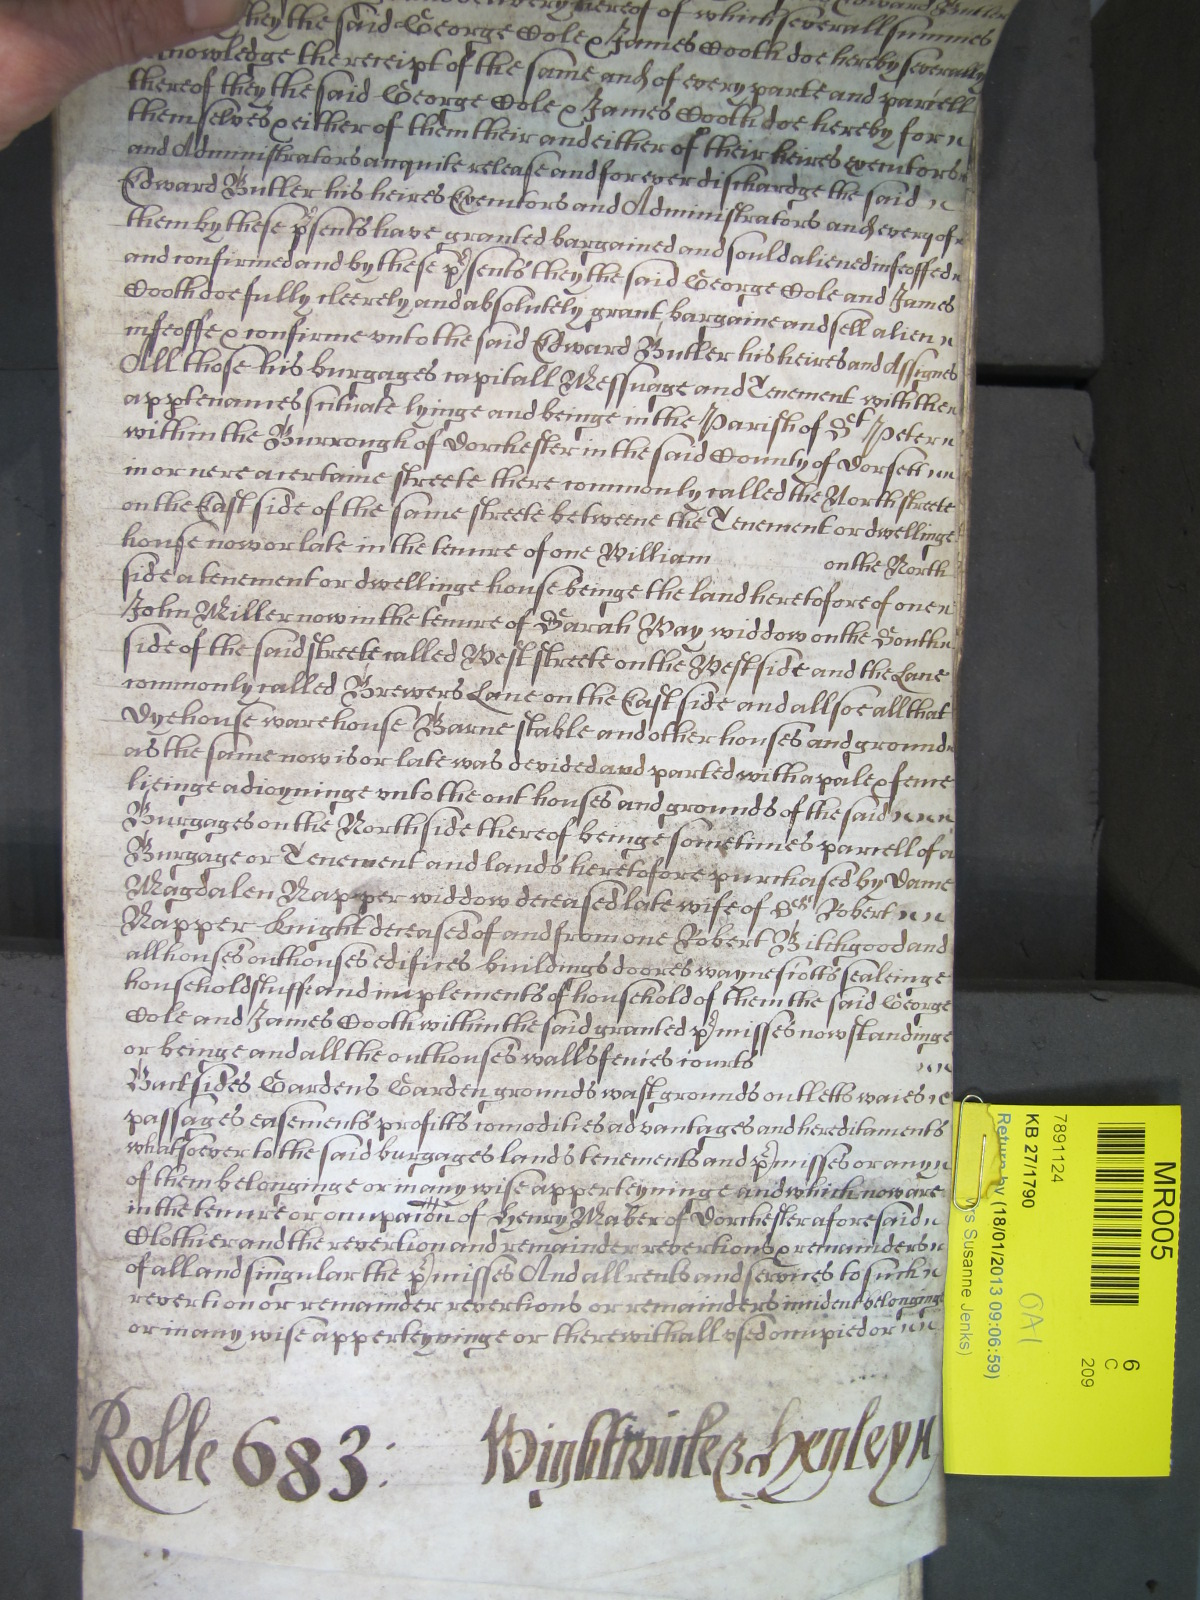 delivery hereof of which severall summes
they the said George Cole & James Gooth doe hereby severally
acknowledge the receipt of the same and of every parte and parcell
thereof they the said George Cole & James Gooth doe hereby for
themselves & either of them their and either of their heires executors
and Administrators acquite release and for ever dischardge the said
Edward Butler his heires Executors and Administrators and every of
them by these p'sents have granted bargained and sould aliened infeoffed
and confirmed and by these p'sents they the said George Cole and James
Gooth doe fully cleerely and absolutely grant bargaine and sell alien
infeoffe & confirme unto the said Edward Butler his heires and Assignes
All those his burgages capitall Messuage and Tenement with then
apptenances scituate lyinge and beinge in the Parish of St Peter
within the Burrough of Dorchester in the said County of Dorsett
in or nere a certaine streete there commonly called the North streete
on the East side of the same streete betweene the Tenement or dwellinge
house now or late in the tenure of one William on the North
side a tenement or dwellinge house beinge the land heretofore of one
John Miller now in the tenure of Sarah Way widdow on the South
side of the said streete called West streete on the West side and the Lane
commonly called Brewers Lane on the East side and allsoe all that
Dyehouse warehouse Barne stable and other houses and ground
as the same now is or late was devided and parted with a pale & fence
lieinge adioyninge unto the out houses and grounds of the said
Burgages on the North side thereof beinge sometimes parcell of a
Burgage or Tenement and lands heretofore purchased by Dame
Magdalen Napper widdow deceased late wife of Sr Robert
Napper Knight deceased of and from one Robert Bitchgood and
all houses outhouses edifices buildings doores waynescotts sealeinge
household stuffe and implements of household of them the said George
Cole and James Gooth within the said granted p'misses now standinge
or beinge and all the outhouses walls fences courts
Backsides Gardens Garden grounds wast grounds outletts waies
passages easements profitts comodities advantages and hereditaments
whatsoever to the said burgages lands tenements and p'misses or any
of them belonginge or in any wise apperteyninge and which now are
in the tenure or occupacon of Henry Maber of Dorchester aforesaid
Clothier and the revertion and remainder revertions & remainders
of all and singular the p'misses And all rents and services to such
revertion or remainder revertions or remainders incident belonginge
or in any wise apperteyninge or therewithall used occupied or
Rolle 683: Wightwicke & Henley
MR005
6
C
209
7891124
KB 27/1790
Return by (18/01/2013 09:06:59)
rs Susanne Jenks)
OA1